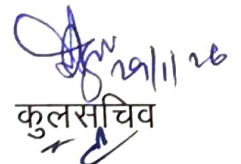 29/11/26
कुलसचिव